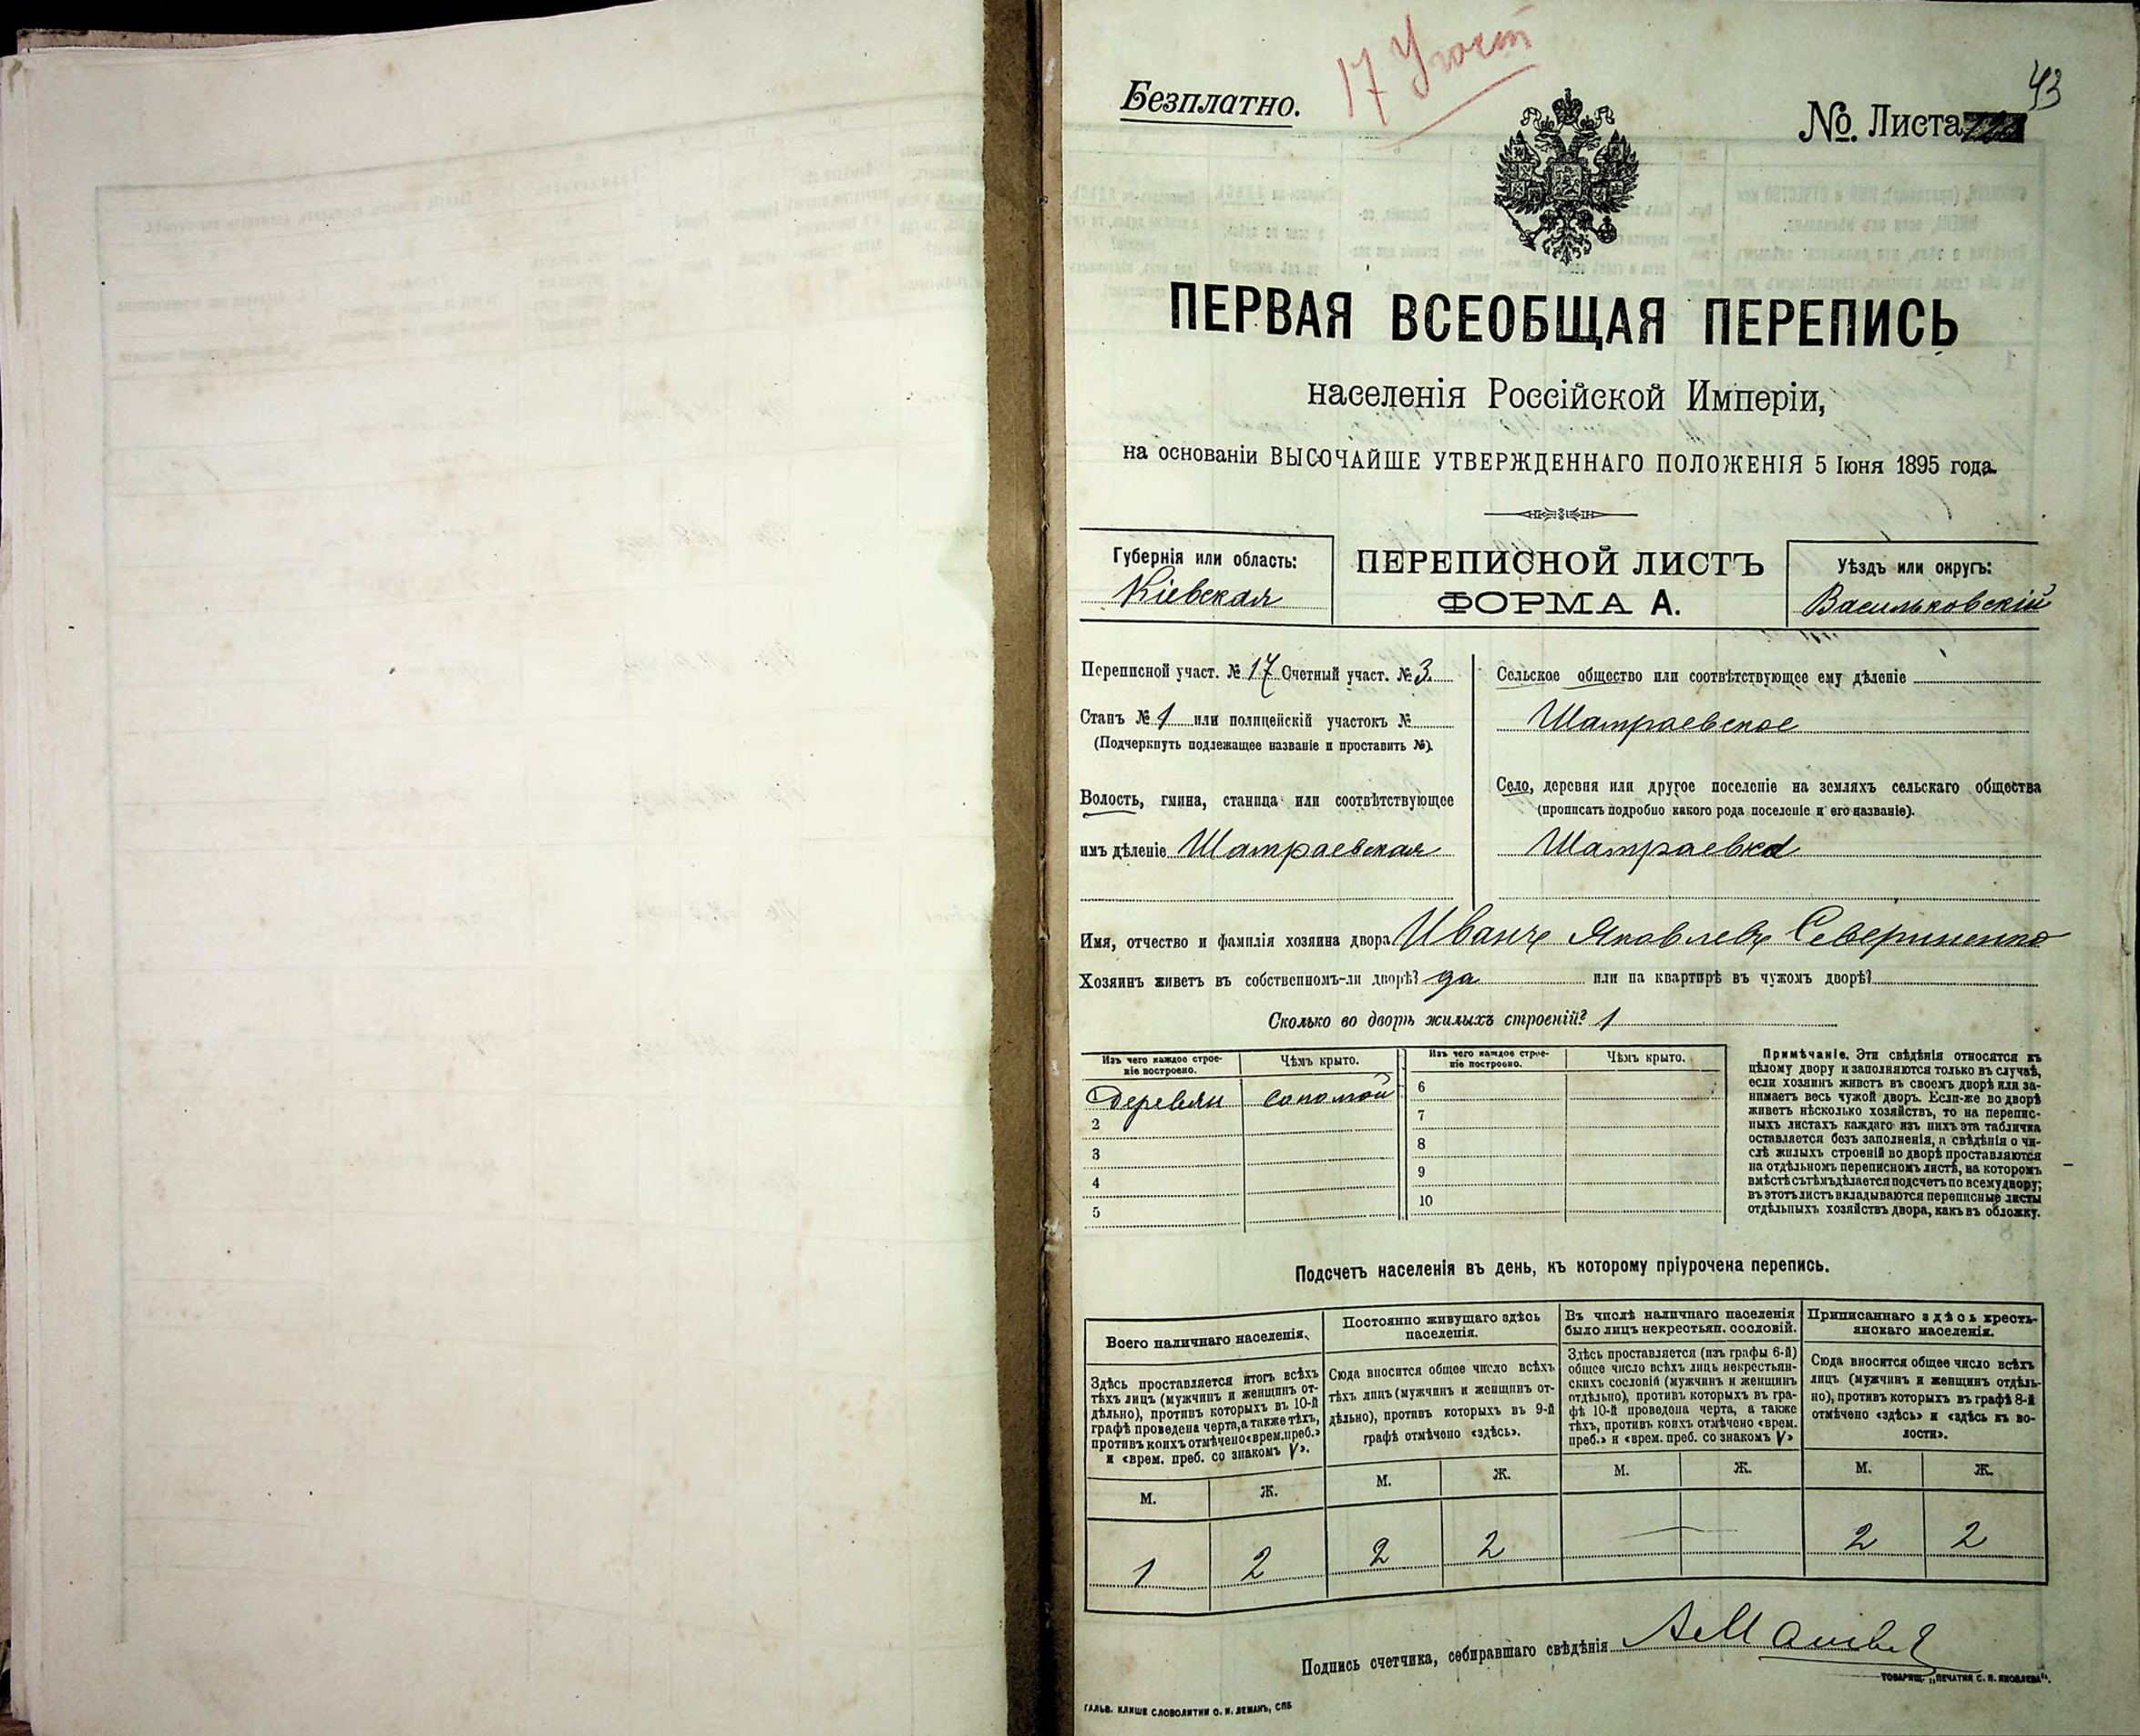 17 Участ
43
Безплатно.
№ Листа
ПЕРВАЯ ВСЕОБЩАЯ ПЕРЕПИСЬ
населенія Россійской Имперіи,
на основаніи ВЫСОЧАЙШЕ УТВЕРЖДЕННАГО ПОЛОЖЕНІЯ 5 Іюня 1895 года.
Губернія или область:
Кіевская
ПЕРЕПИСНОЙ ЛИСТЪ
ФОРМА А.
Уѣздъ или округъ:
Васильковскій
Переписной участ. № 17 Счетный участ. № 3
Станъ № 1 или полицейскій участокъ №
(Подчеркнуть подлежащее названіе и проставить №).
Волость, гмина, станица или соотвѣтствующее
имъ дѣленіе Шамраевская
Сельское общество или соотвѣтствующее ему дѣленіе
Шамраевское
Село, деревня или другое поселеніе на земляхъ сельскаго общества
(прописать подробно какого рода поселеніе и его названіе).
Шамраевка
Имя, отчество и фамилія хозяина двора Иванъ Яковлевъ Севериненко
Хозяинъ живетъ въ собственномъ-ли дворѣ? да или на квартирѣ въ чужомъ дворѣ?
Сколько во дворѣ жилыхъ строеній? 1
Изъ чего каждое строе-
ніе построено.
Чѣмъ крыто.
Изъ чего каждое строе-
ніе построено.
Чѣмъ крыто.
1 Деревян соломой
2
3
4
5
6
7
8
9
10
Примѣчаніе. Эти свѣдѣнія относятся къ
цѣлому двору и заполняются только въ случаѣ,
если хозяинъ живетъ въ своемъ дворѣ или за-
нимаетъ весь чужой дворъ. Если-же во дворѣ
живетъ нѣсколько хозяйствъ, то на перепис-
ныхъ листахъ каждаго изъ нихъ эта табличка
оставляется безъ заполненія, а свѣдѣнія о чи-
слѣ жилыхъ строеній во дворѣ проставляются
на отдѣльномъ переписномъ листѣ, на которомъ
вмѣстѣ съ тѣмъ дѣлается подсчетъ по всему двору;
въ этотъ листъ вкладываются переписные листы
отдѣльныхъ хозяйствъ двора, какъ въ обложку.
Подсчетъ населенія въ день, къ которому пріурочена перепись.
Всего наличнаго населенія.
Здѣсь проставляется итогъ всѣхъ
тѣхъ лицъ (мужчинъ и женщинъ от-
дѣльно), противъ которыхъ въ 10-й
графѣ проведена черта, а также тѣхъ,
противъ коихъ отмѣчено «врем. преб.»
и «врем. преб. со знакомъ V».
М. Ж.
1 2
Постоянно живущаго здѣсь
населенія.
Сюда вносится общее число всѣхъ
тѣхъ лицъ (мужчинъ и женщинъ от-
дѣльно), противъ которыхъ въ 9-й
графѣ отмѣчено «здѣсь».
М. Ж.
2 2
Въ числѣ наличнаго населенія
было лицъ некрестьян. сословій.
Здѣсь проставляется (изъ графы 6-й)
общее число всѣхъ лицъ некрестьян-
скихъ сословій (мужчинъ и женщинъ
отдѣльно), противъ которыхъ въ гра-
фѣ 10-й проведена черта, а также
тѣхъ, противъ коихъ отмѣчено «врем.
преб.» и «врем. преб. со знакомъ V»
М. Ж.
Приписаннаго здѣсь кресть-
янскаго населенія.
Сюда вносится общее число всѣхъ
лицъ (мужчинъ и женщинъ отдѣль-
но), противъ которыхъ въ графѣ 8-й
отмѣчено «здѣсь» и «здѣсь къ во-
лости».
М. Ж.
2 2
Подпись счетчика, собиравшаго свѣдѣнія
ТОВАРИЩ. „ПЕЧАТНЯ С. П. ЯКОВЛЕВА“.
ГАЛЬВ. КЛИШЕ СЛОВОЛИТНИ О. И. ЛЕМАНЪ, СПБ